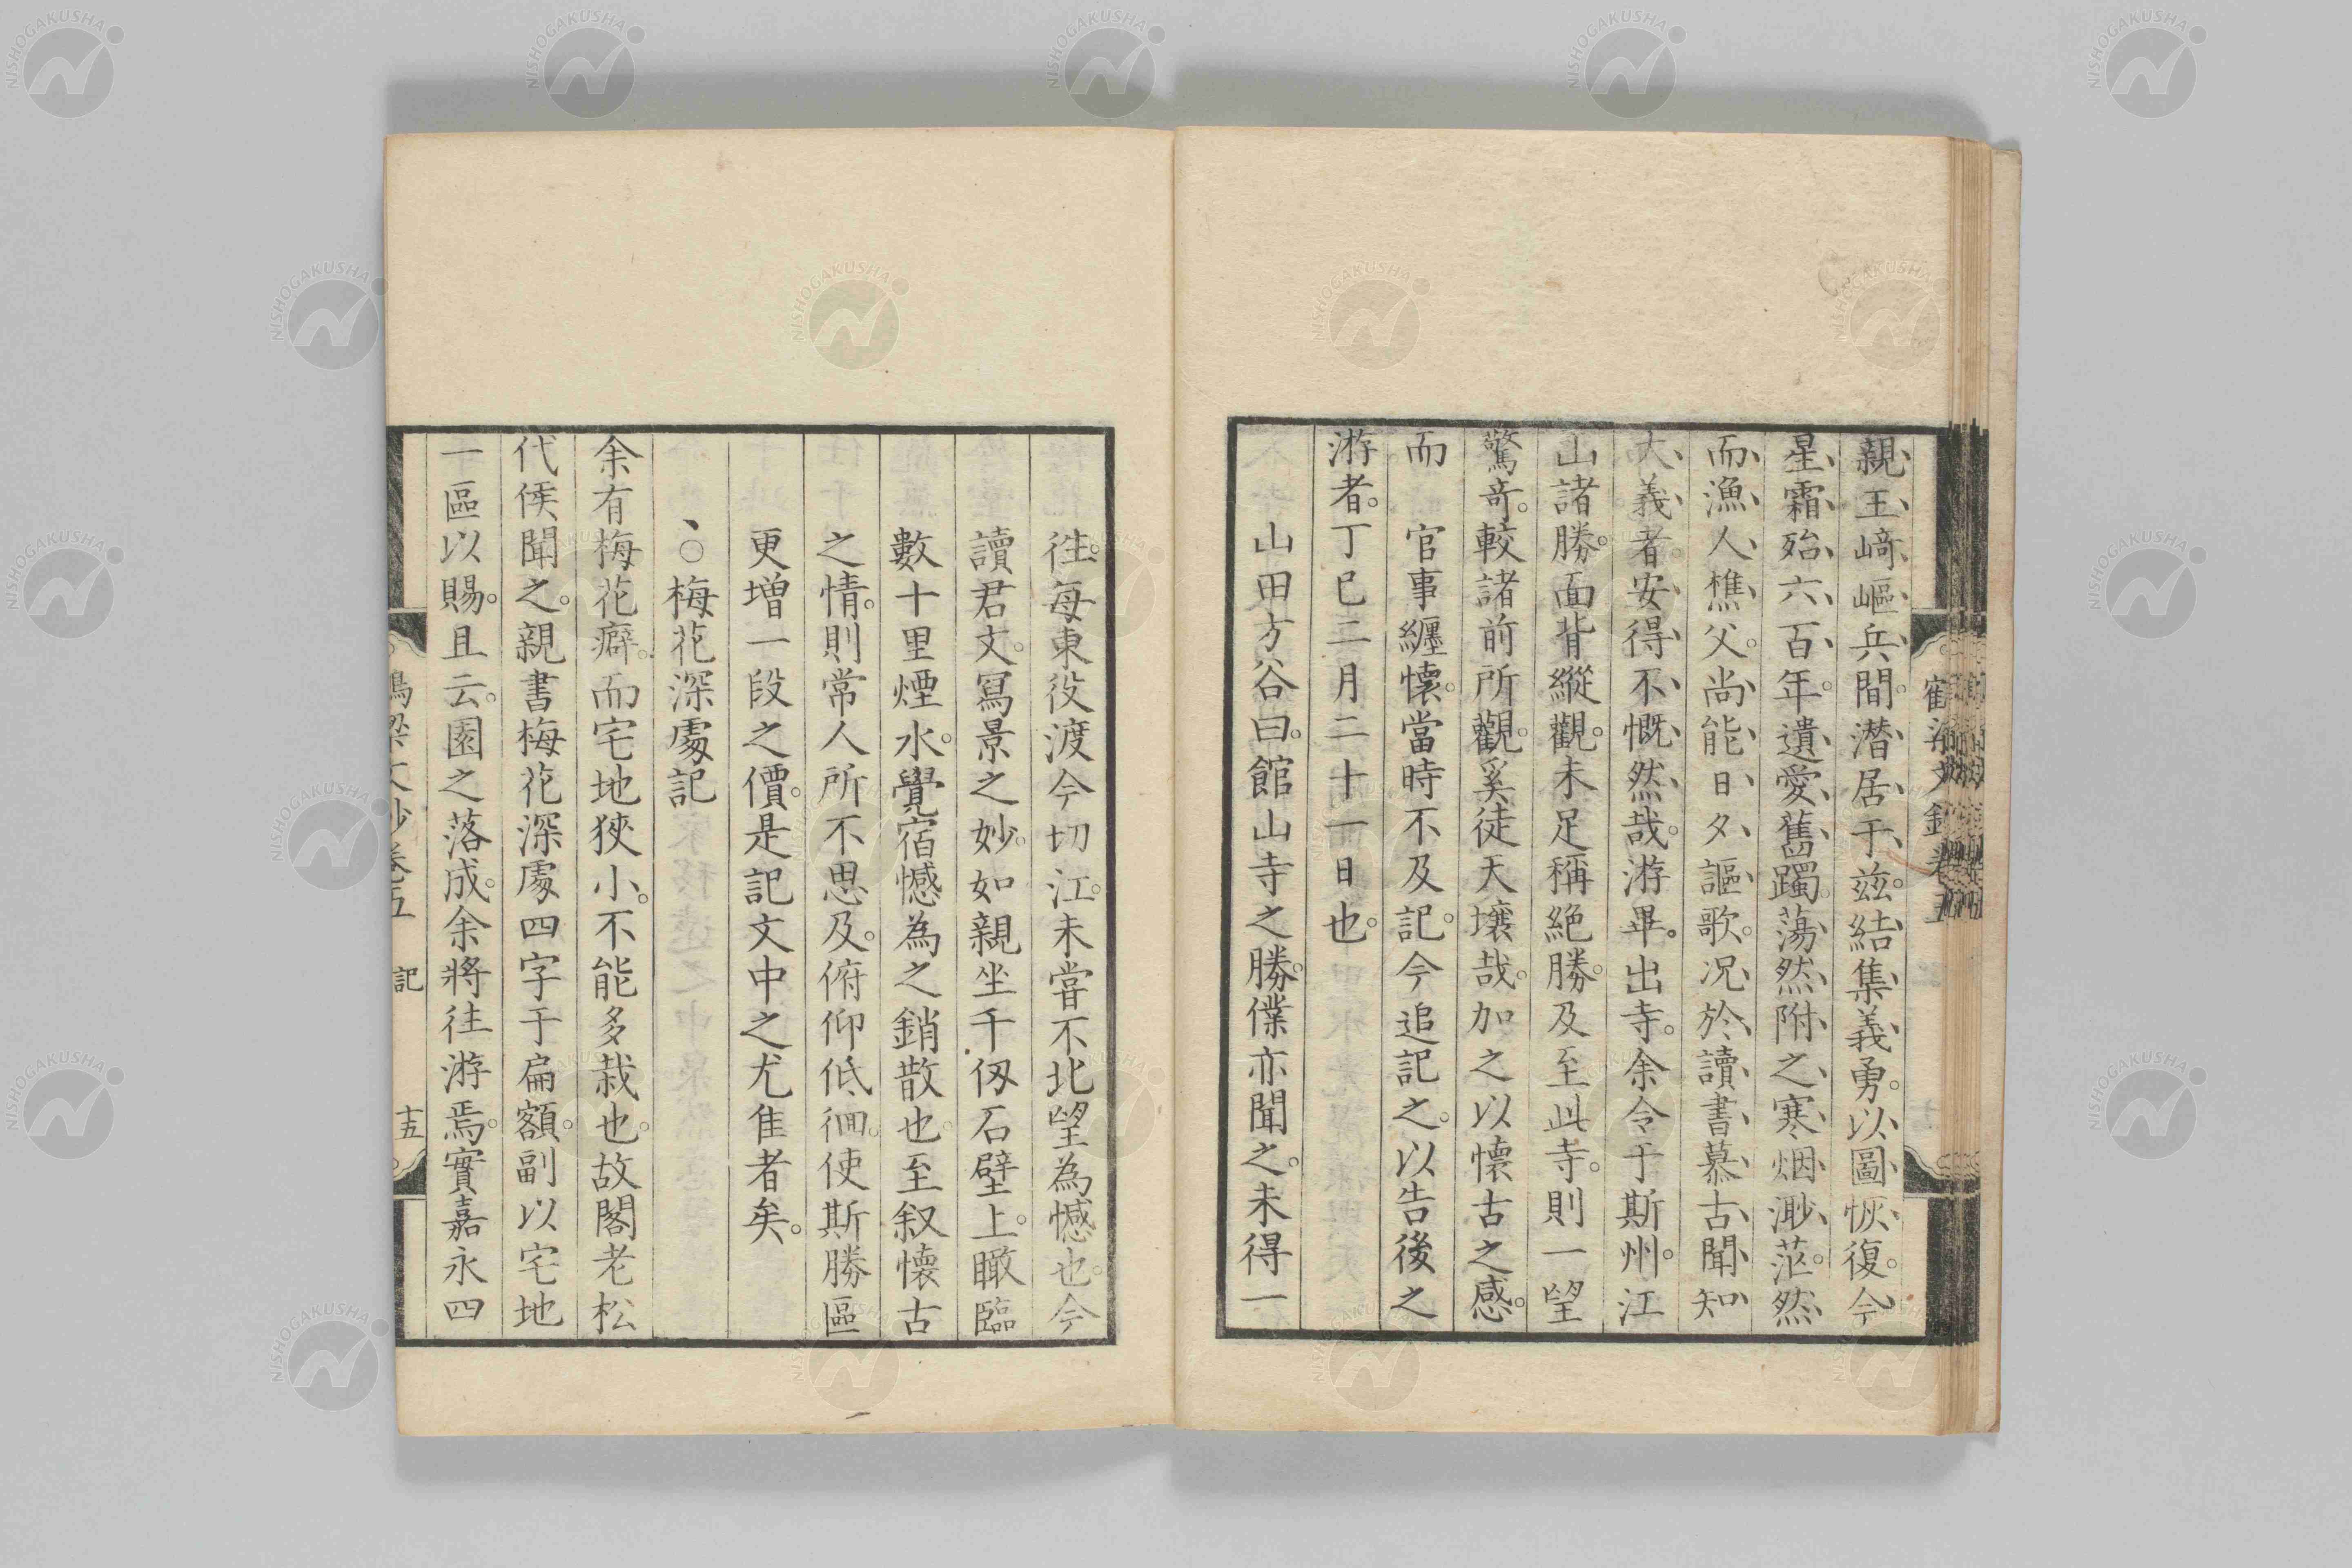 親王﨑嶇兵間潛居于兹。結集義勇。以圖恢復。今
星霜殆六百年。遺愛舊躅。蕩然附之寒烟渺茫。然
而漁人樵父。尚能日夕謳歌。况於讀書慕古聞知
大義者。安得不慨然哉。游畢。出寺。余令于斯州。江
山諸勝。面背縱觀。未足稱絶勝。及至此寺。則一望
驚奇。較諸前所觀。奚徒天壤哉。加之以懷古之感。
而官事纏懷。當時不及記。今追記之。以告後之
游者。丁巳二月二十一日也。
山田方谷曰。館山寺之勝。僕亦聞之。未得一
往。每東役渡今切江。未嘗不北望為憾也。今
讀君文。寫景之妙。如親坐千仭石壁上。瞰臨
數十里煙水。覺宿憾為之銷散也。至叙懷古
之情。則常人所不思及。俯仰低徊。使斯勝區
更增一段之價。是記文中之尤隹者矣。
、○梅花深處記
余有梅花癖。而宅地狹小。不能多栽也。故閣老松
代侯聞之。親書梅花深處四字于扁額。副以宅地
一區以賜。且云。園之落成。余將往游焉。實嘉永四
卷五 記 十五